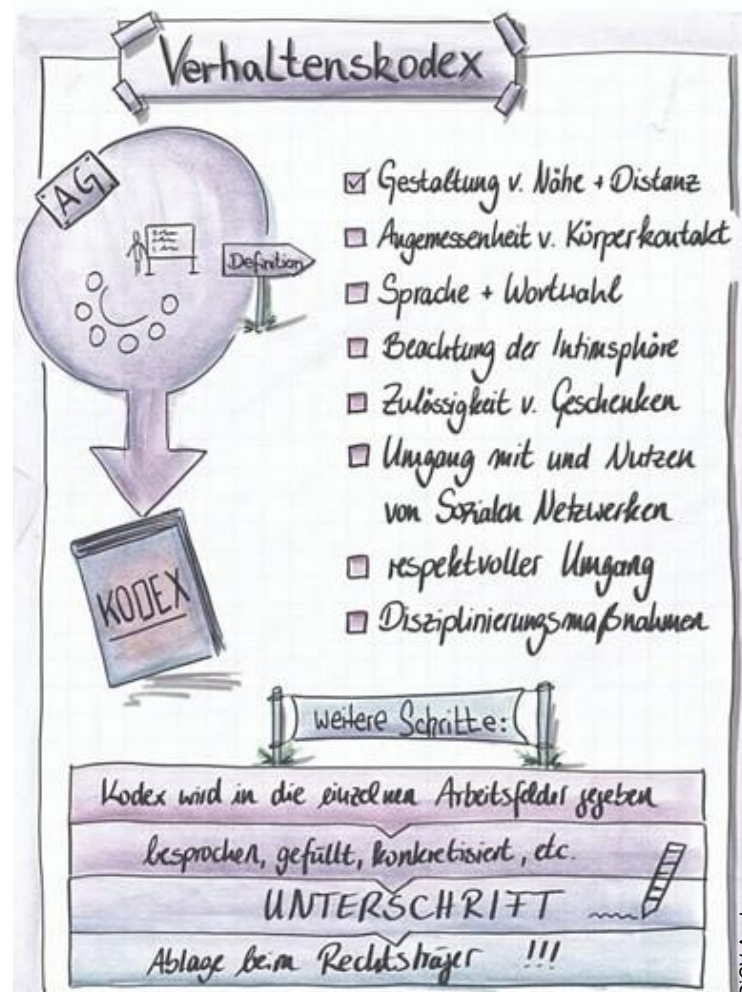 Verhaltenskodex
AG
Definition
Gestaltung v. Nähe + Distanz
Angemessenheit v. Körperkontakt
Sprache + Wortwahl
Beachtung der Intimsphäre
Zulässigkeit v. Geschenken
Umgang mit und Nutzen
von Sozialen Netzwerken
respektvoller Umgang
Disziplinierungsmaßnahmen
KODEX
weitere Schritte:
Kodex wird in die einzelnen Arbeitsfelder gegeben
besprochen, gefüllt, konkretisiert, etc.
UNTERSCHRIFT
Ablage beim Rechtsträger !!!